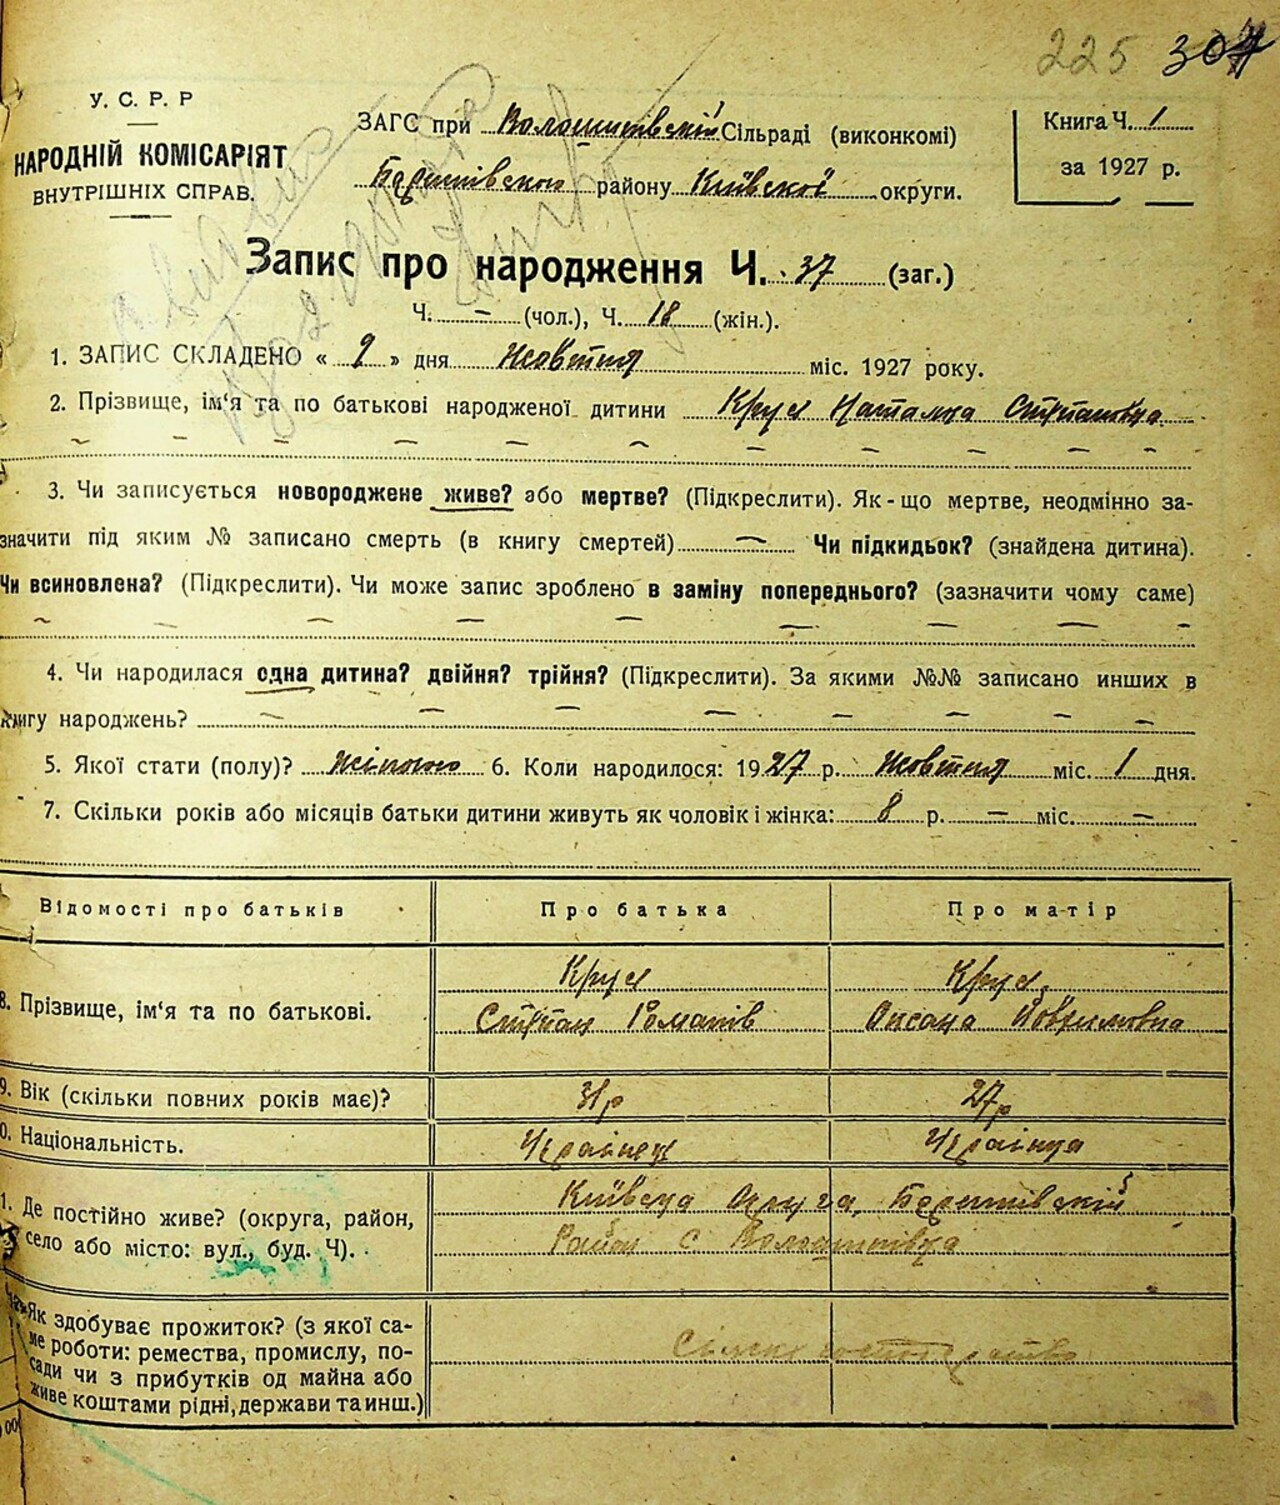 225 307
У. С. Р. Р
НАРОДНІЙ КОМІСАРІЯТ
ВНУТРІШНІХ СПРАВ.
ЗАГС при Волошинівскій Сільраді (виконкомі)
Баришівского району Київскої округи.
Книга Ч. 1
за 1927 р.
Запис про народження Ч. 37 (заг.)
Ч. — (чол.), Ч. 18 (жін.).
1. ЗАПИС СКЛАДЕНО « 9 » дня Жовтня міс. 1927 року.
2. Прізвище, ім'я та по батькові народженої дитини Наталка Степановна
3. Чи записується новороджене живе? або мертве? (Підкреслити). Як-що мертве, неодмінно за-
значити під яким № записано смерть (в книгу смертей) — Чи підкидьок? (знайдена дитина).
Чи всиновлена? (Підкреслити). Чи може запис зроблено в заміну попереднього? (зазначити чому саме)
4. Чи народилася одна дитина? двійня? трійня? (Підкреслити). За якими №№ записано инших в
книгу народжень?
5. Якої стати (полу)? 6. Коли народилося: 1927 р. Жовтня міс. 1 дня.
7. Скільки років або місяців батьки дитини живуть як чоловік і жінка: 8 р. — міс. —
Відомості про батьків Про батька Про матір
8. Прізвище, ім'я та по батькові.
Степан Романів Оксана
9. Вік (скільки повних років має)? 31р 27р
10. Національність. Українец Українка
11. Де постійно живе? (округа, район,
село або місто: вул., буд. Ч).
Київска Округа, Баришівскій
Район с Волошинівка
12. Як здобуває прожиток? (з якої са-
ме роботи: ремества, промислу, по-
сади чи з прибутків од майна або
живе коштами рідні, держави та инш.)